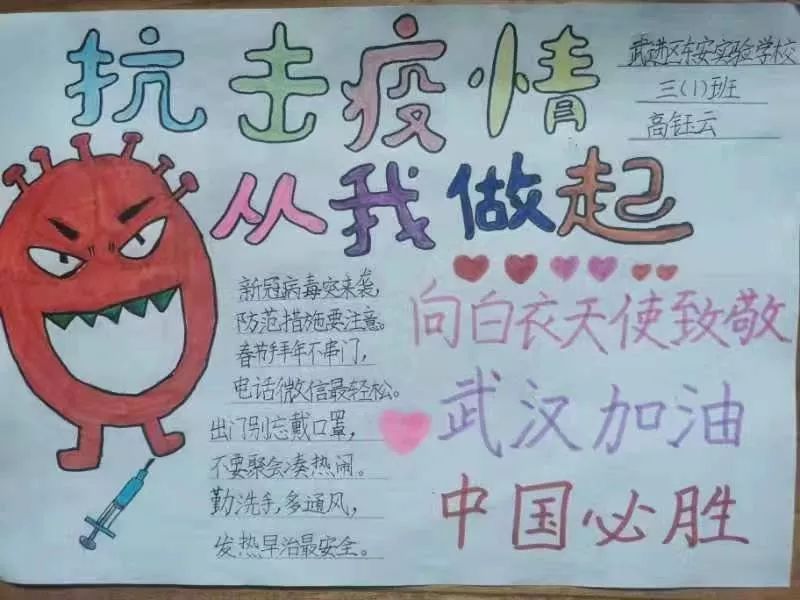 抗击疫情
武进区东安实验学校
三(1)班
高钰云
从我做起
新冠病毒突来袭,
防范措施要注意。
春节拜年不串门,
电话微信最轻松。
出门别忘戴口罩,
不要聚会凑热闹。
勤洗手,多通风,
发热早治最安全。
向白衣天使致敬
武汉加油
中国必胜